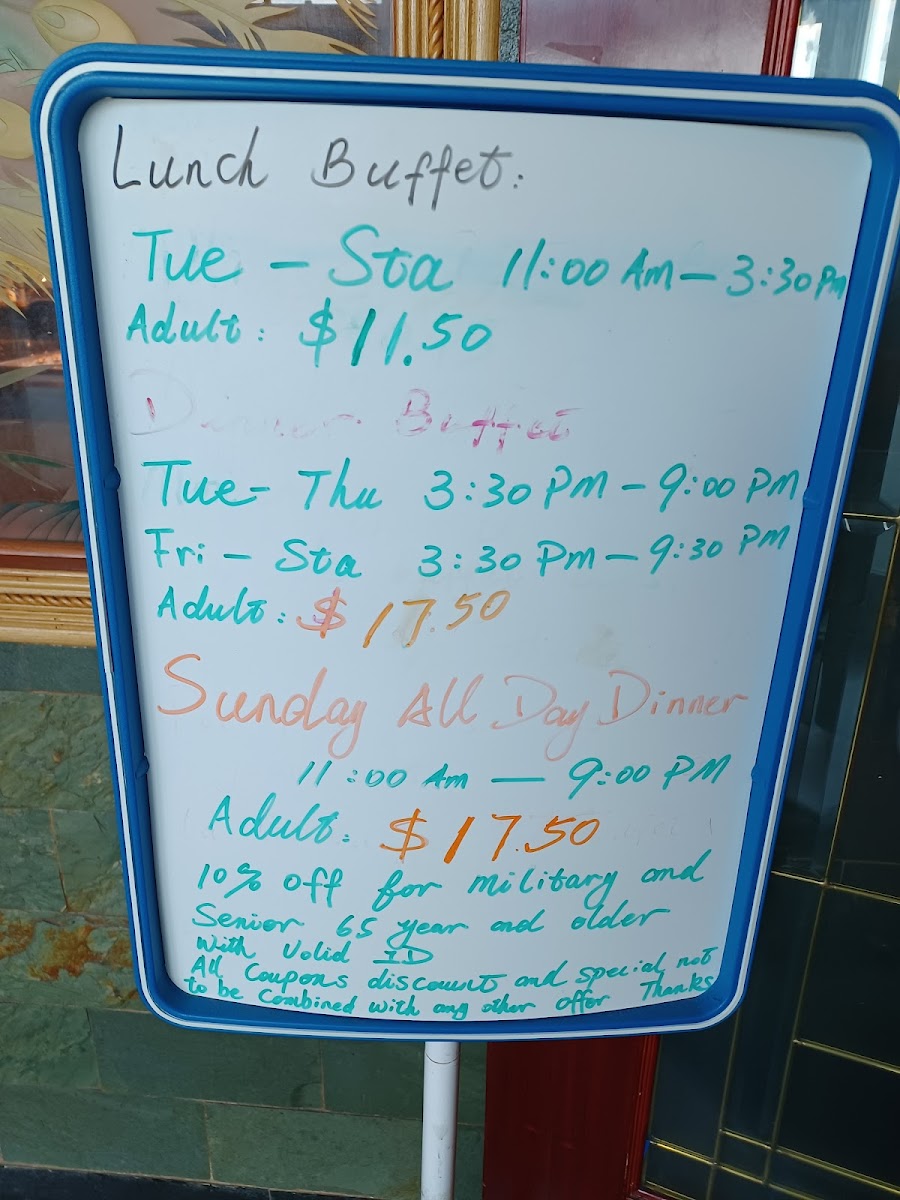 Lunch Buffet:
Tue - Sta 11:00 Am - 3:30 Pm
Adult: $11.50
Dinner Buffet
Tue- Thu 3:30 PM - 9:00 PM
Fri - Sta 3:30 Pm - 9:30 PM
Adult: $17.50
Sunday All Day Dinner
11:00 Am — 9:00 PM
Adult: $17.50
10% off for military and
Senior 65 year and older
With Valid ID
All Coupons discount and special not
to be Combined with any other offer Thanks